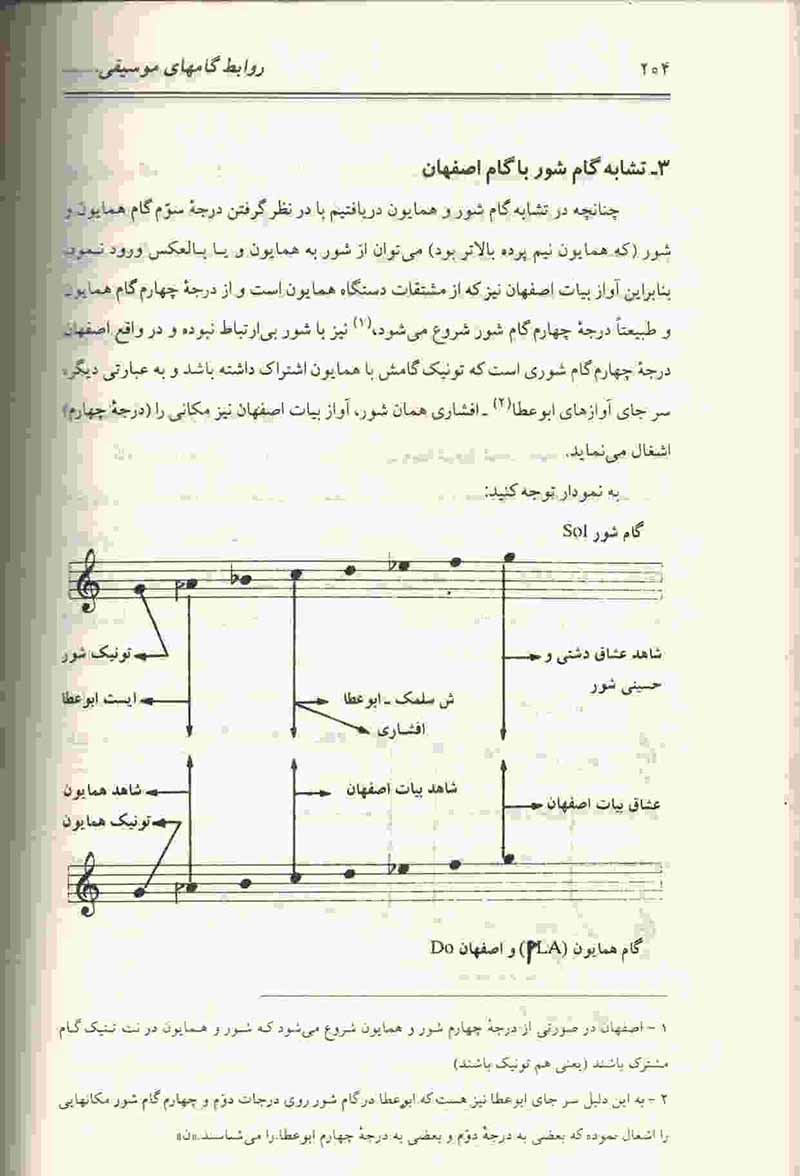 ۲۰۴
روابط گامهای موسیقی
۳ـ تشابه گام شور با گام اصفهان
چنانچه در تشابه گام شور و همایون دریافتیم با در نظر گرفتن درجهٔ سوّم گام همایون و
شور (که همایون نیم پرده بالاتر بود) می‌توان از شور به همایون و یـا بـالعکس ورود نـمود.
بنابراین آواز بیات اصفهان نیز که از مشتقات دستگاه همایون است و از درجهٔ چهارم گام همایون
و طبیعتاً درجهٔ چهارم گام شور شروع می‌شود،(۱) نیز با شور بی‌ارتباط نبوده و در واقع اصفهان
درجهٔ چهارم گام شوری است که تونیک گامش با همایون اشتراک داشته باشد و به عبارتی دیگر،
سر جای آوازهای ابوعطا(۲) ـ افشاری همان شور، آواز بیات اصفهان نیز مکانی را (درجهٔ چهارم)
اشغال می‌نماید.
به نمودار توجه کنید:
گام شور Sol
تونیک شور
شاهد عشاق دشتی و
حسینی شور
ایست ابوعطا
ش سلمک ـ ابوعطا
افشاری
شاهد همایون
شاهد بیات اصفهان
عشاق بیات اصفهان
تونیک همایون
گام همایون (LA) و اصفهان Do
۱ - اصفهان در صورتی از درجهٔ چهارم شور و همایون شروع می‌شود کـه شـور و هـمایون در نت تـنیک گـام
مشترک باشند (یعنی هم تونیک باشند)
۲ - به این دلیل سر جای ابوعطا نیز هست که ابوعطا در گام شور روی درجات دوّم و چهارم گام شور مکانهایی
را اشغال نموده که بعضی به درجهٔ دوّم و بعضی به درجهٔ چهارم ابوعطا را می‌شناسند.«ن»